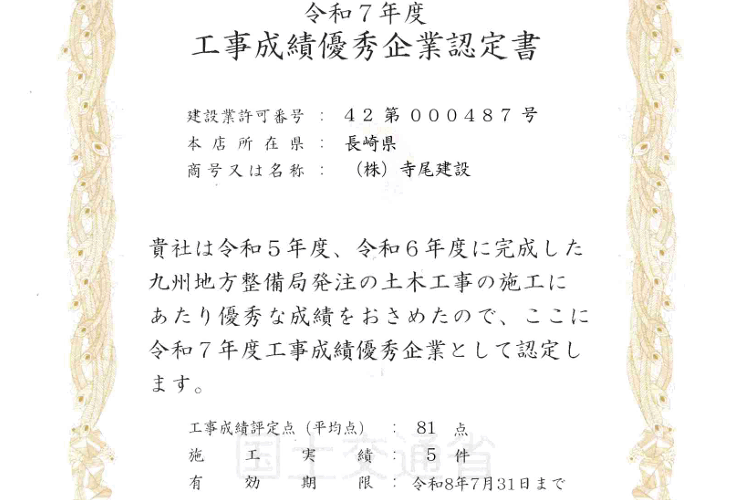 令和７年度
工事成績優秀企業認定書
建設業許可番号 ： ４２ 第 ０００４８７ 号
本店所在県 ： 長崎県
商号又は名称 ： （株）寺尾建設
貴社は令和５年度、令和６年度に完成した
九州地方整備局発注の土木工事の施工に
あたり優秀な成績をおさめたので、ここに
令和７年度工事成績優秀企業として認定し
ます。
工事成績評定点（平均点） ： 81 点
施工実績 ： 5 件
国土交通省
有効期限 ： 令和8年7月31日まで